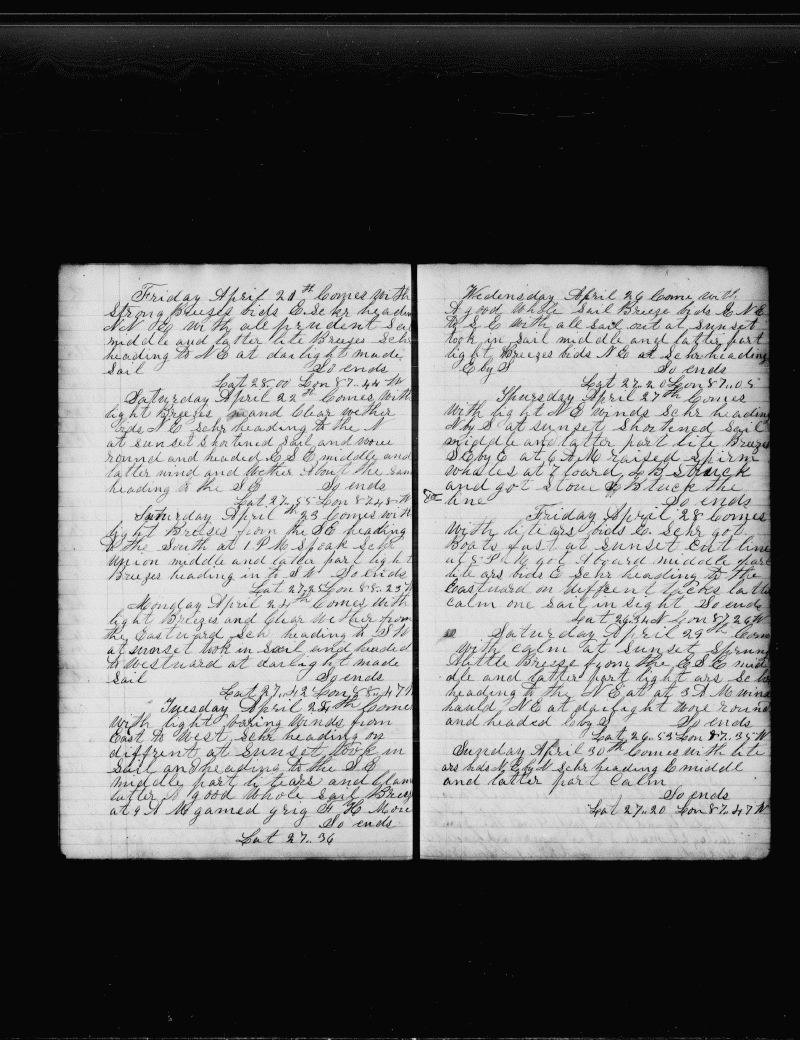 Friday April 21th Comes With
Strong Breeses bids E Schr headin
NN E With all prudent Sail
middle and latter lite Breezes Schr
heading to N E at dailight made
Sail So ends
Lat 28.00 Lon 87..44 W
Saturday April 22th Comes With
light Breezes and Clear wether
bids N E Schr heading to the N
at sunset Shortined Sail and wore
round and headed E S E middle and
latter wind and wether about the sam
heading to the S E So ends
Lat 27..55 Lon 87..48 W
Saturday April 23th Comes with
light Breeses from the SE heading
to the South at 1 P M Spoak Schr
Union middle and latter part light
Breezes heading in to S W So ends
Lat 27.25 Lon 88..23 W
Monday April 24th Comes With
light Breezes and Clear Wether from
the Eastward Sch heading to S W
at sunset took in Sail and headed
to Westward at darlight made
Sail So ends
Lat 27..42 Lon 88..47 W
Tuesday April 25th Comes
With light baring Winds from
East to West Schr heading on
diffrent at Sunset took in
Sail and heading to the S E
middle part
latter A good Whole Sail Breez
at 9 A M gamed
So ends
Lat 27..36
Wedensday April 26 Come with
A good Whole Sail Breeze bids E N E
to S E With all Sail out at Sunset
took in Sail middle and latter part
light Breezes bids N E at Schr heading
E by S So ends
Lat 27..20 Lon 87..05
Thursday April 27th Comes
With light N E Winds Schr heading
N by S at sunset Shortened Sail
middle and latter part lite Breezes
S E by E at 6 A M raised Spirm
Whales at 7 loard L B Struck
and got stove B Stuck the
line So ends
Friday April 28 Comes
With lite ars bids E. Schr got
Boats fast at Sunset Cut line
at 8 P M got Aboard middle part
lite ars bids E Schr heading to the
Eastward on diffrent tacks latter
Calm one Sail in Sight So ends
Lat 26.34 N Lon 87.26 W
Saturday April 29th Come
With Calm at Sunset Sprung
A lattle Breeze from the E S E mid
dle and latter part light ars Schr
heading to the N E at at 3 A M wind
hauld N E at daylight Wore round
and headed E by S So ends
Lat 26.53 Lon 87..35 W
Sunday April 30th Comes With lite
ars bds N E by N Schr heading E middl
and latter part Calm
So ends
Lat 27..20 Lon 87..47 W